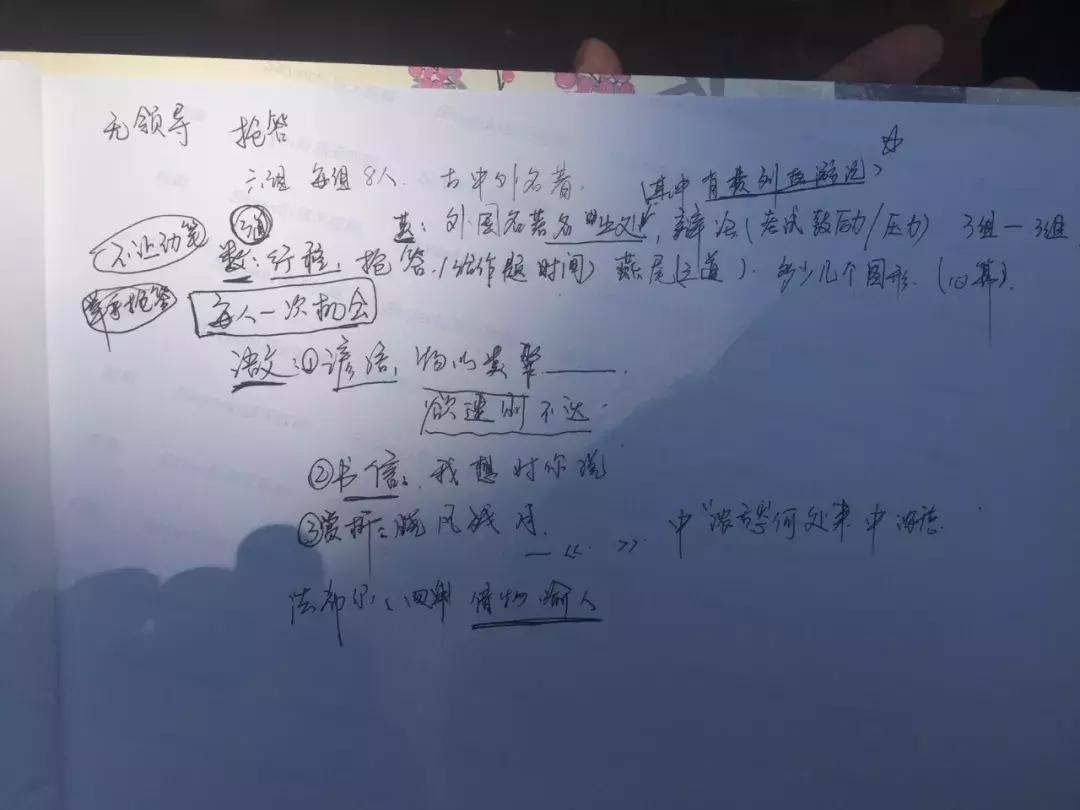 无领导 抢答
六组 每组8人. 古中外名著. (其中有格列佛游记)
英: 外国名著名"出处", 辩论(考试鼓励/压力) 3组一3组
不让动笔 3道
数: 行程, 抢答. (给作题时间) 燕尾(2道). 多少几个图形. (心算).
举手抢答 每人一次机会
语文: ①谚语, 物以类聚____.
欲速则不达.
②书信: 我想对你说
③赏析: 晓风残月.
—《 》 中"浓愁何处来 中
法都尔、四年 借物喻人